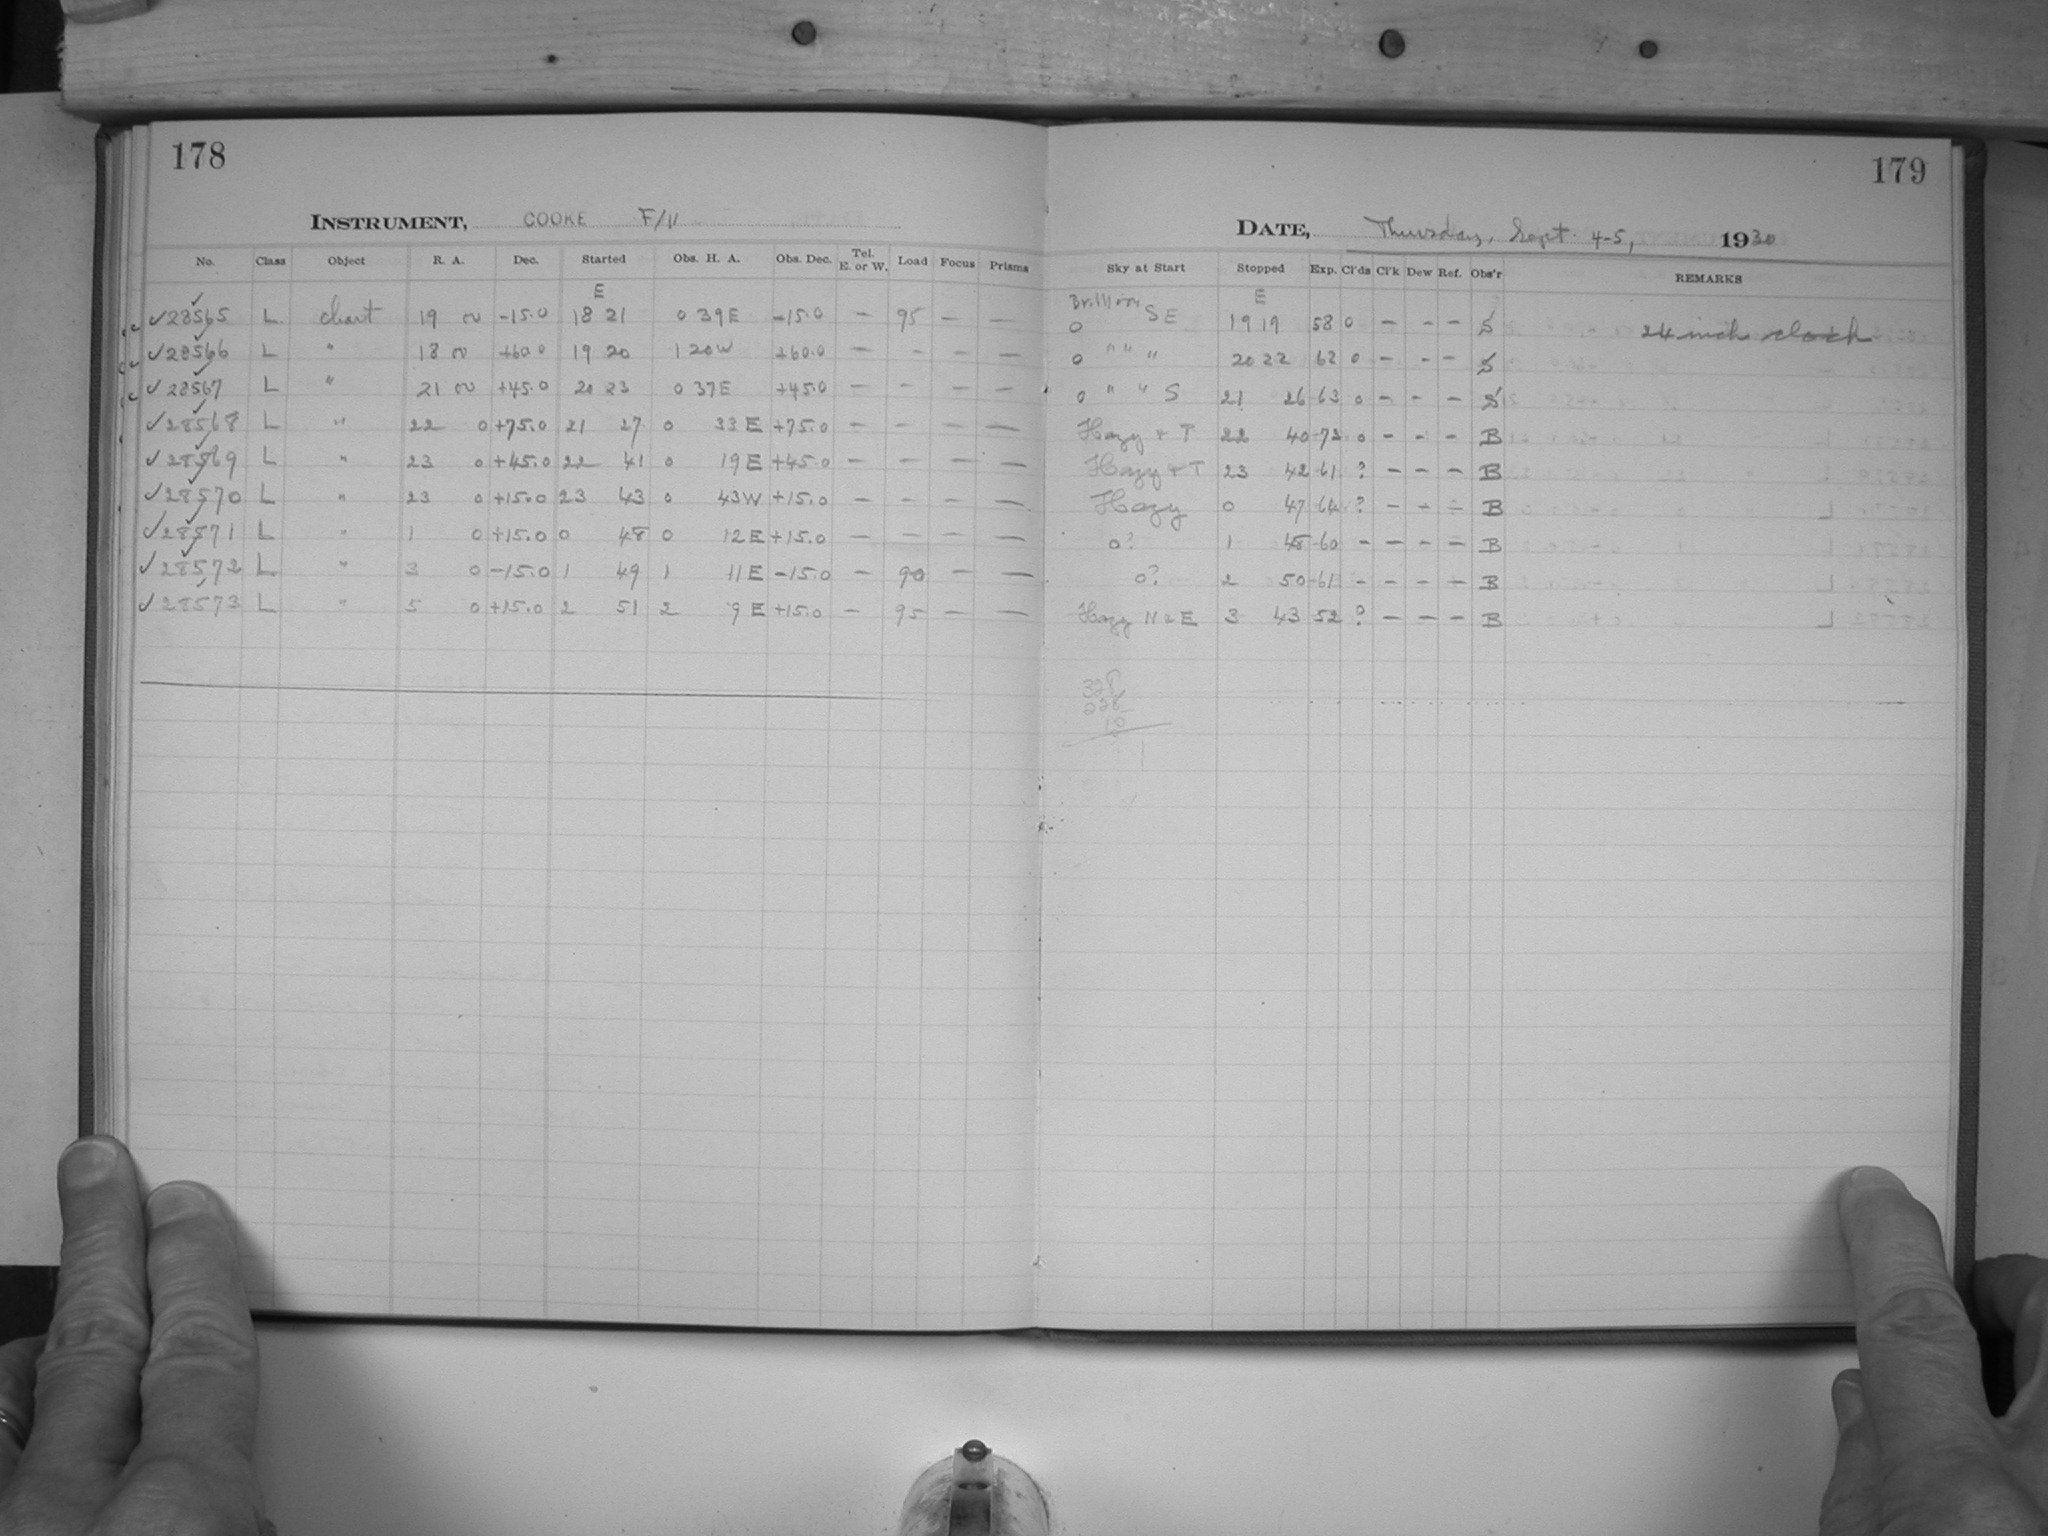 178
INSTRUMENT, COOKE F/11
No. Class Object R. A. Dec. Started Obs. H. A. Obs. Dec. Tel. E. or W. Load Focus Prisms
E
✓28565 L chart 19 00 -15.0 18 21 0 39E -15.0 — 95 — —
✓28566 L " 18 00 +60.0 19 20 1 20W +60.0 — - — —
✓28567 L " 21 00 +45.0 20 23 0 37E +45.0 — - — —
✓28568 L " 22 0 +75.0 21 27 0 33 E +75.0 — — — —
✓28569 L " 23 0 +45.0 22 41 0 19 E +45.0 — — — —
✓28570 L " 23 0 +15.0 23 43 0 43W +15.0 — — — —
✓28571 L " 1 0 +15.0 0 48 0 12E +15.0 — — — —
✓28572 L " 3 0 -15.0 1 49 1 11E -15.0 — 90 — —
✓28573 L " 5 0 +15.0 2 51 2 9 E +15.0 — 95 — —
179
DATE, Thursday, Sept. 4-5, 1930
Sky at Start Stopped Exp. Cl'ds Cl'k Dew Ref. Obs'r REMARKS
E
0 SE 19 19 58 0 — - — S 24 inch clock
0 " " " 20 22 62 0 — - — S
0 " " S 21 26 63 0 — - — S
Hazy & T 22 40 73 0 - - — B
Hazy & T 23 42 61 ? — — — B
Hazy 0 47 64 ? - - - B
0? 1 48 60 — — — — B
0? 2 50 61 - - - - B
Hazy N & E 3 43 52 ? — — — B
328
228
10